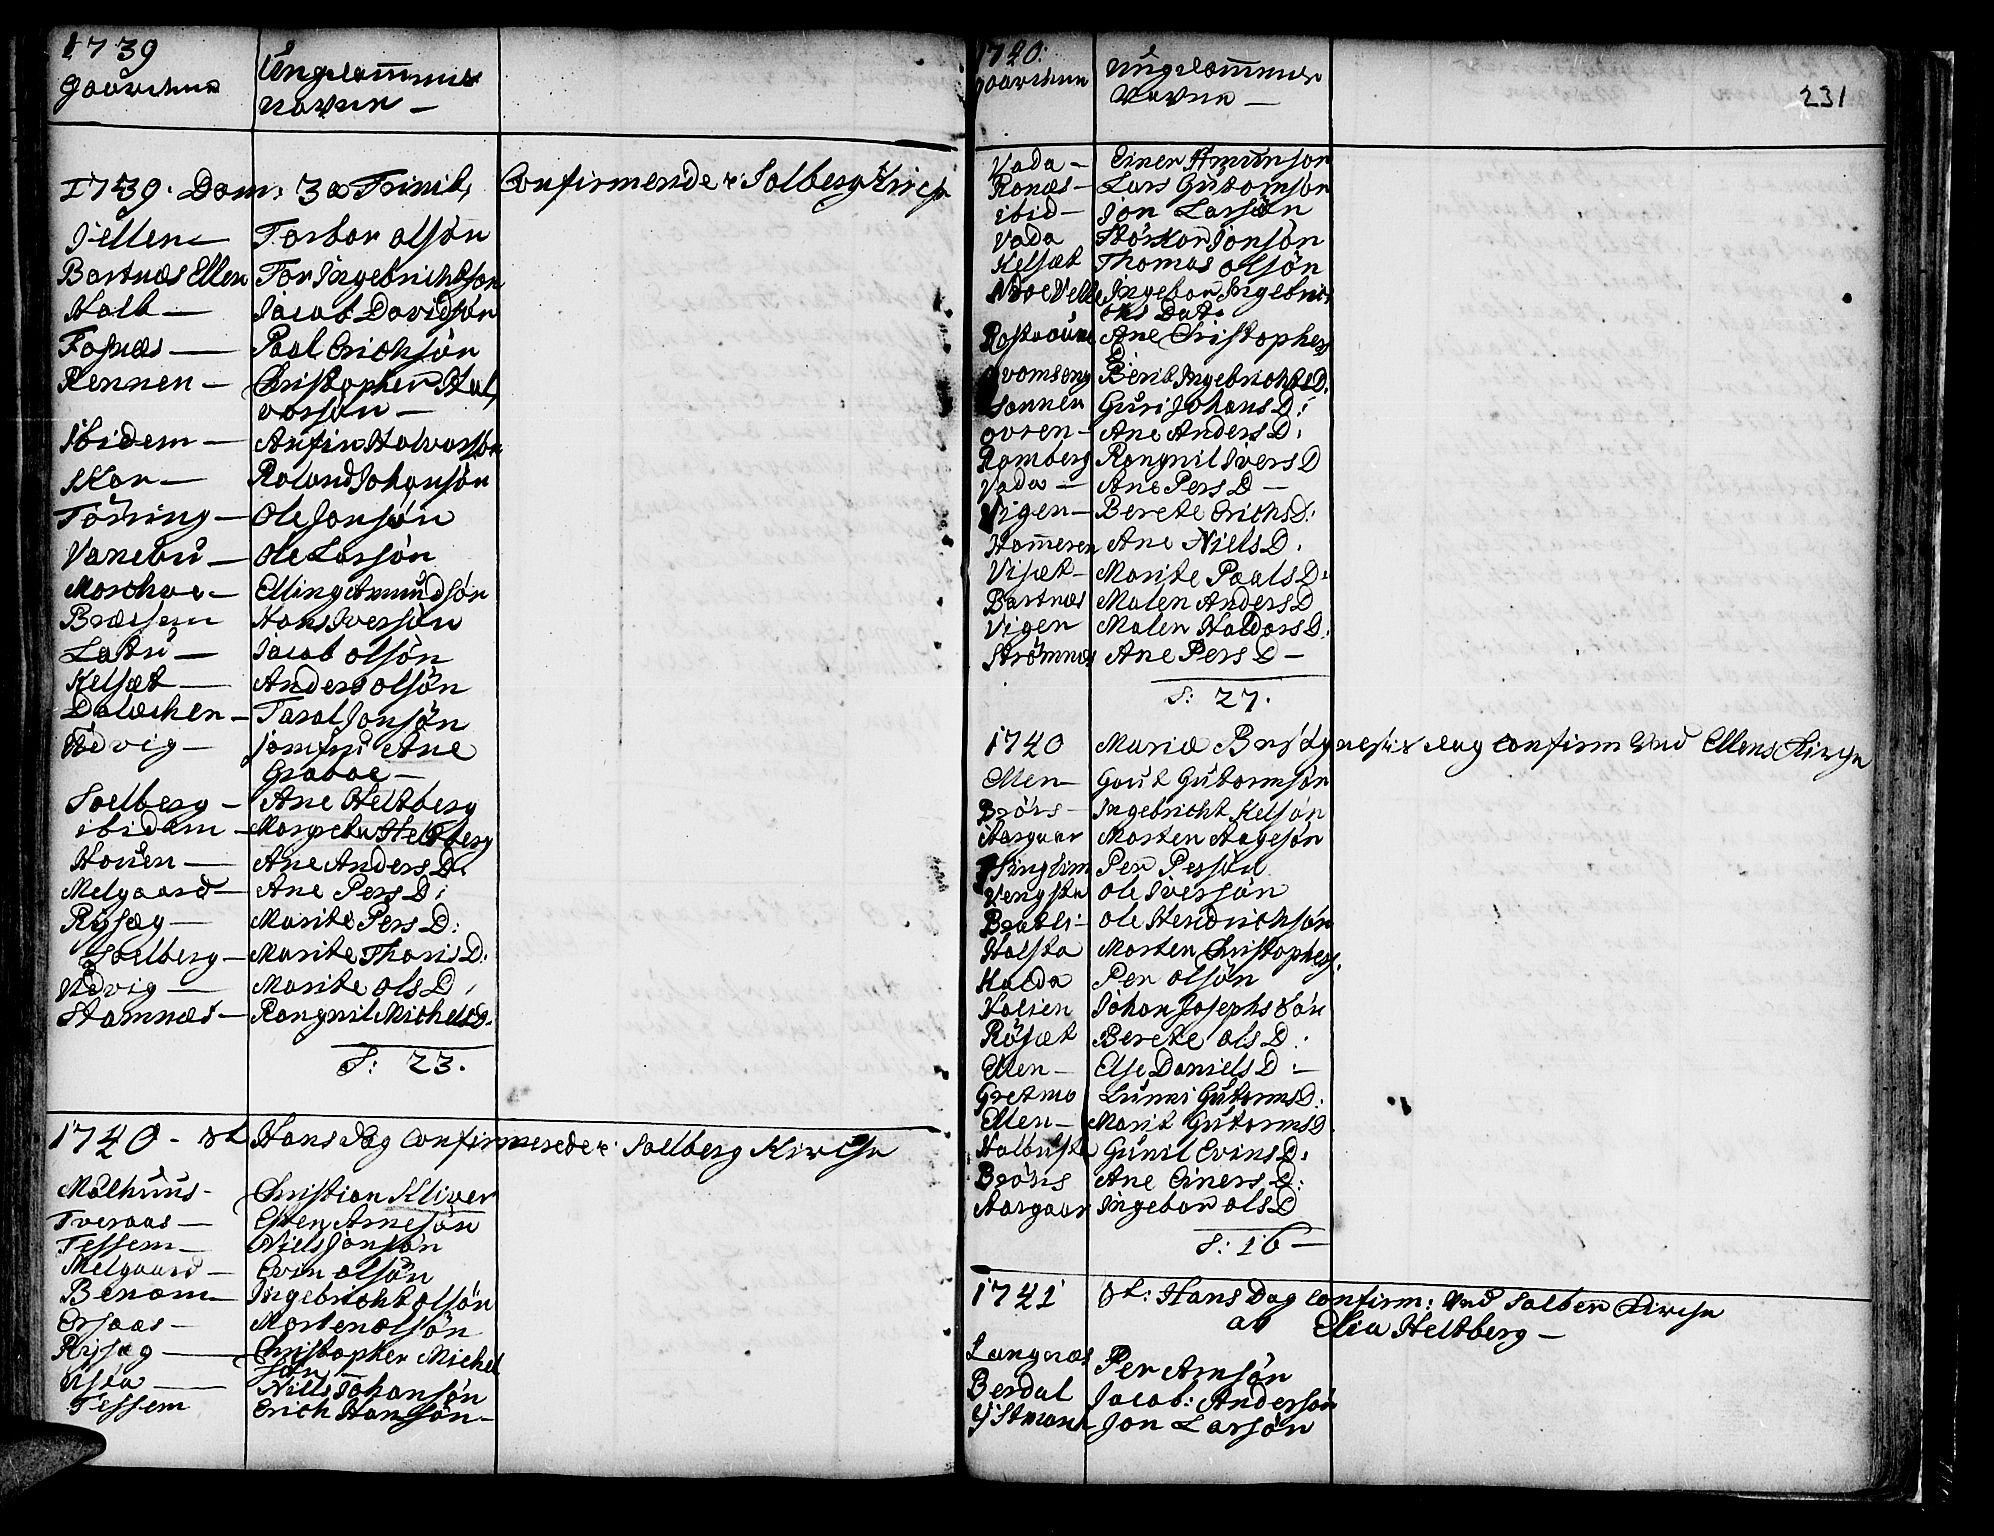 1739
Gaardene
Ungdommens
Navne —
1739. Dom: 3æ Trinit, Confirmerede i Solberg Kirche
Jellen — Torbor Olsön
Bartnæs Ellen Tor Ingebrichtsön
Halt — Jacob Davidsön
Fosnæs — Paal Erichsön
Rennen — Christopher Hal,
vorsön —
Ibidem — Anfin Halvorsön
Skar — Roland Johansön
Törring — Ole Jonsön
Vanebu — Ole Larsön
Morchve — Elling Amundsön
Bræsem Hans Iversön
Latu — Jacob Olsön
Kelsæt — Anders Olsön
Dalechen — Taral Jonsön
Udvig — Jomfru Ane
Graboe —
Soelberg — Ane Heltberg
ibidem — Margrete Heltberg
Houen — Ane Anders D:
Melgaard — Ane Pers D:
Rysæg — Marite Pers D:
Soelberg — Marite Thoris D:
Udvig — Marite Ols D:
Stamnæs — Rangnil Michels D.
S: 23.
1740 - St Hans Dag Confirmerede i Solberg Kirche
Malhuus - Christian Kliver
Tveraas — Esten Arnesön
Tessem — Niels Jonsön
Melgaard — Evin Olsön
Benæm — Ingebricht Olsön
Ersaas — Morten Olsön
Rysæg — Christopher Michel
sön —
Usta — Nills Johansön
Tessem Erich Hansön —
1740.
Gaardene
Ungdommens
Navne —
231
Vada — Einer Amunsön
Ronæs — Lars Gutormsön
ibid — Jon Larsön
Vada Störkor Jonsön
Kelsæt Thomas Olsön
Ingebor Ingebri
chts Dat:
Ane Christophers
D
Berit Ingebrichts D:
Sonnen Guri Johans D:
Ovren — Ane Anders D:
Romberg Rangnil Ivers D
Vada — Ane Pers D —
Vigen — Berete Erichs D:
Hammeren Ane Niels D:
Visæt — Marite Paals D:
Bartnæs Malen Anders D
Vigen Malen Haldors D:
Strömnæs Ane Pers D —
S: 27.
1740 Mariæ Dag Confirm Ved Ellens Kirche
Ellen — Gout Gutormsön
Brörs — Ingebricht Kelsön
Aasgaar Morten Aagesön
Per Persön
Vengsta Ole Iversön
Bratli — Ole Hendrichsön
Halsta Morten Christophers.
Halda Per Olsön
Halien Johan Josephs Sön
Rösæt Berete Ols D:
Ellen — Else Daniels D: —
Gretmo Lunni Gutorms D:
Ellen — Marit Gutorms D.
Halbust Gunil Evins D:
Brörs Ane Einers D:
Aasgaar Ingebor Ols D
S: 16 —
1741 St: Hans Dag Confirm: Ved Salber Kirche
ab Elia Heltberg —
Langnæs Per Arnsön
Berdal Jacob: Andersön
Jon Larsön